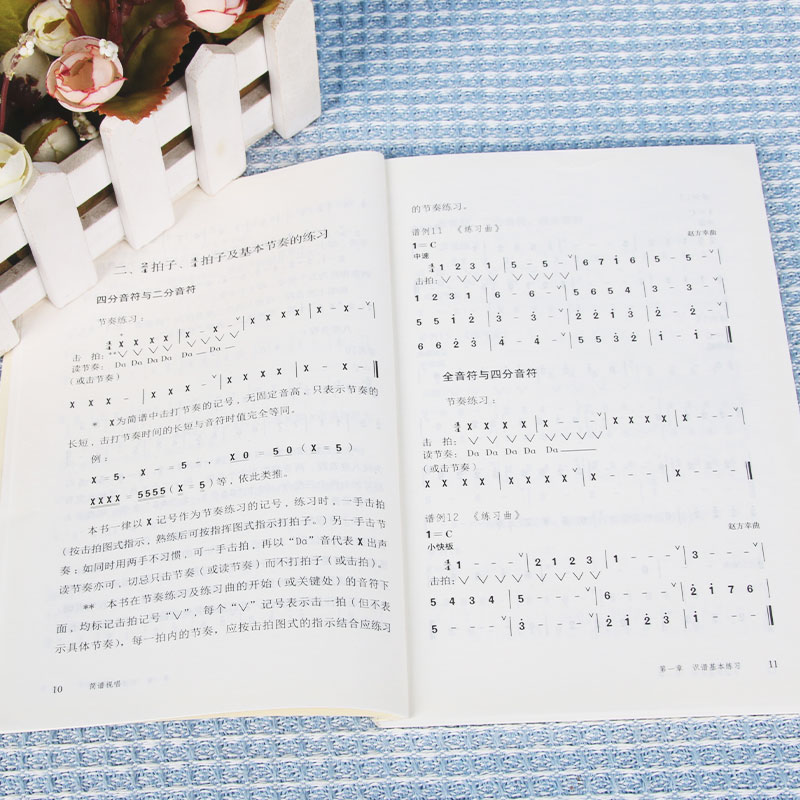 二、2/4拍子、4/4拍子及基本节奏的练习
四分音符与二分音符
节奏练习:
4/4 X X X X | X - X - ∨ | X X X X | X - X - ∨ |
击 拍: **∨∨∨∨∨∨∨∨
读节奏: Da Da Da Da Da — Da —
(或击节奏)
X X X - | X X X - ∨ | X X X X | X X X - ‖
* X为简谱中击打节奏的记号,无固定音高,只表示节奏的
长短,击打节奏时间的长短与音符时值完全等同。
例:
X = 5, X - = 5 -, X 0 = 5 0 (X = 5)
XXXX = 5555 (X = 5) 等,依此类推。
本书一律以 X 记号作为节奏练习的记号,练习时,一手击拍
(按击拍图式指示,熟练后可按指挥图式指示打拍子。)另一手击节
奏;如同时用两手不习惯,可一手击拍,再以“Da”音代表 X 出声
读节奏亦可,切忌只击节奏(或读节奏)而不打拍子(或击拍)。
** 本书在节奏练习及练习曲的开始(或关键处)的音符下
面,均标记击拍记号“∨”,每个“∨”记号表示击一拍(但不表
示具体节奏),每一拍内的节奏,应按击拍图式的指示结合应练习
10 简谱视唱
的节奏练习。
谱例11 《练习曲》
1=C 赵方幸曲
中速
4/4 1 2 3 1 | 5 - 5 - ∨ | 5 6 7 1̇ | 5 - 5 - ∨ |
击拍: ∨∨∨∨∨∨∨∨
1 2 3 1 | 6 - 6 - ∨ | 5 6 5 4 | 3 - 3 - ∨ |
5 5 1̇ 2̇ | 3̇ - 3̇ - ∨ | 2̇ 2̇ 1̇ 3̇ | 2̇ - 2̇ - ∨ |
6 6 2̇ 3̇ | 4̇ - 4̇ - ∨ | 5 5 3̇ 2̇ | 1̇ - 1̇ - ‖
全音符与四分音符
节奏练习:
4/4 X X X X | X - - - ∨ | X X X X | X - - - ∨ |
击 拍: ∨∨∨∨∨∨∨∨
读节奏: Da Da Da Da Da ———
(或击节奏)
谱例12 《练习曲》
1=C 赵方幸曲
小快板
4/4 1 - - - ∨ | 2 1 2 3 | 1 - - - ∨ | 3 - - - ∨ |
击拍: ∨∨∨∨∨∨∨∨
5 4 3 4 | 5 - - - ∨ | 6 - - - ∨ | 2̇ 1̇ 7 6 |
5 - - - ∨ | 3̇ - - - ∨ | 2̇ 1̇ 2̇ 3̇ | 1̇ - - - ‖
第一章 识谱基本练习 11